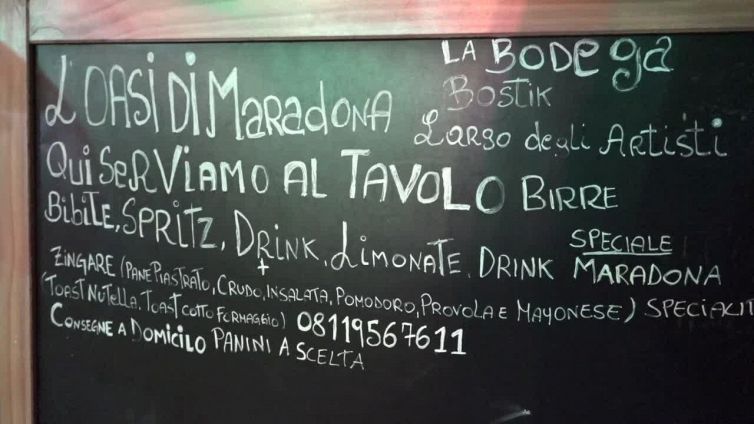 L'OASI DI MARADONA
LA BODEGA
BOSTIK
LARGO degli ARTISTI
QUI SERVIAMO AL TAVOLO BIRRE
BIBITE, SPRITZ, DRINK, LIMONATE, DRINK SPECIALE MARADONA
+
ZINGARE (PANE PIASTRATO, CRUDO, INSALATA, POMODORO, PROVOLA E MAYONESE) SPECIALIT
(TOAST NUTELLA, TOAST COTTO FORMAGGIO) 08119567611
CONSEGNE A DOMICILO PANINI A SCELTA